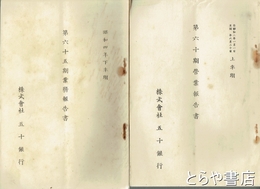 上半期
第六十期營業報告書
株式會社 五十銀行
昭和四年下半期
第六十五期業務報告書
株式會社 五十銀行
とらや書店